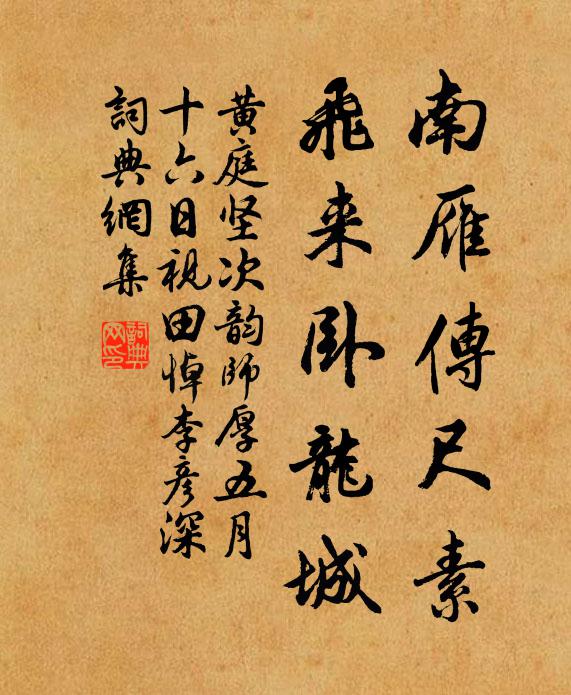 南雁傳尺素
飛来卧龍城
黄庭坚次韵師厚五月
十六日視田悼李彦深
詞典網集
詞典
网印